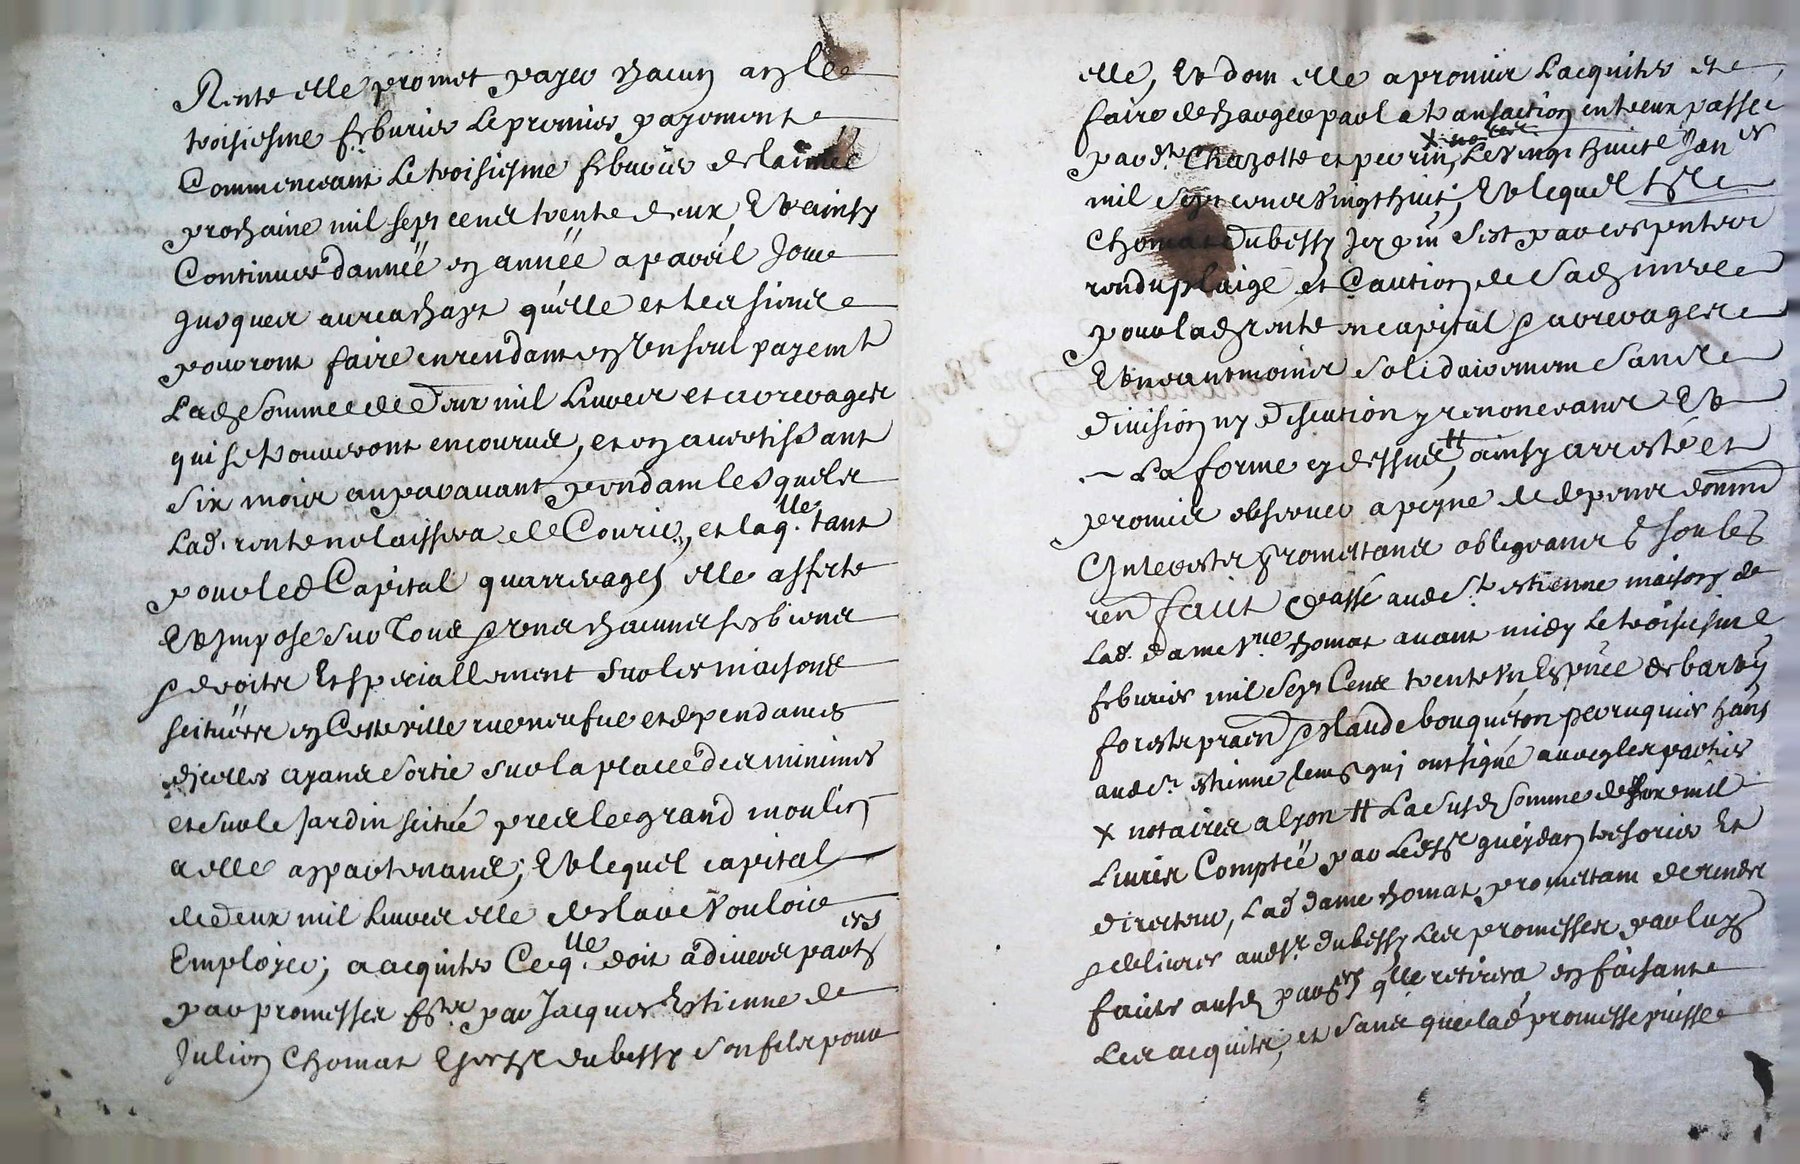 Rente elle promet payer chacun an le
troisiesme feburier le premier payement
Commencant le troisiesme feburier de lannée
prochaine mil sept cent trente deux, Et ainsy
Continuer d'année en année a pareil Jour
Jusques au reachapt qu'elle et les siens
pourront faire en rendant en un seul payemt
Lade somme de deux mil Livres et arrerages
qui se trouveront encourus, et en avertissant
six mois auparavant pendant lesquels
Lad. rente ne laissera de Courir, et laq.lle tant
pour led Capital qu'arrerages elle affecte
Et Impose sur Tous presens chacuns ses biens
droits Et specialement sur les maisons
scituées en Cette ville rue neufve et dependances
d'jcelles ayans sortie sur la place des minimes
et sur le Jardin scitué pres le grand moulin
a elle appartenans; Et lequel capital
de deux mil Livres elle declare Vouloir
Employer; a acquitter Ce q.lle doit a divers part.ers
par promesses f.tes par Jacques Estienne de
Julien Chomat Sr dubessy son fils pour
elle, Et dont elle a promis L'acquitter et
faire descharger par la transaction entreux passée
par dt Chazotte et perrin, X Le vingt huict Janer
mil sept cent vingt huit; Et lequel Sr
Chomat dubessy Jcy s'est par ces presentes
rendu plaige et Caution de sad mere
pour lad rente en capital arrerages
Et neantmoins solidairement sans
division ny discution y renoncans Et
La forme cy dessus #, ainsy arresté et
promis observer a peyne de depens domm
Interests promettans obligeans soubs
ren faict Passé aud St. estienne maison de
Lad. dame Vve chomat avant midy Le troisiesme
feburier mil sept Cent trente un Es pnce de
forests praen Claude bouqueton perruquier
aud St. estienne qui ont signé avec les parties
X notaires a lyon # La susd somme de deux mil
Livres Comptée par Led Sr tresorier Et
directeur, Lad dame chomat promettant de rendre
delivrer aud Sr. dubessy Les promesses par luy
faites aux q.lle retirera en faisant
Les acquiter, et sans que lad promesse puisse